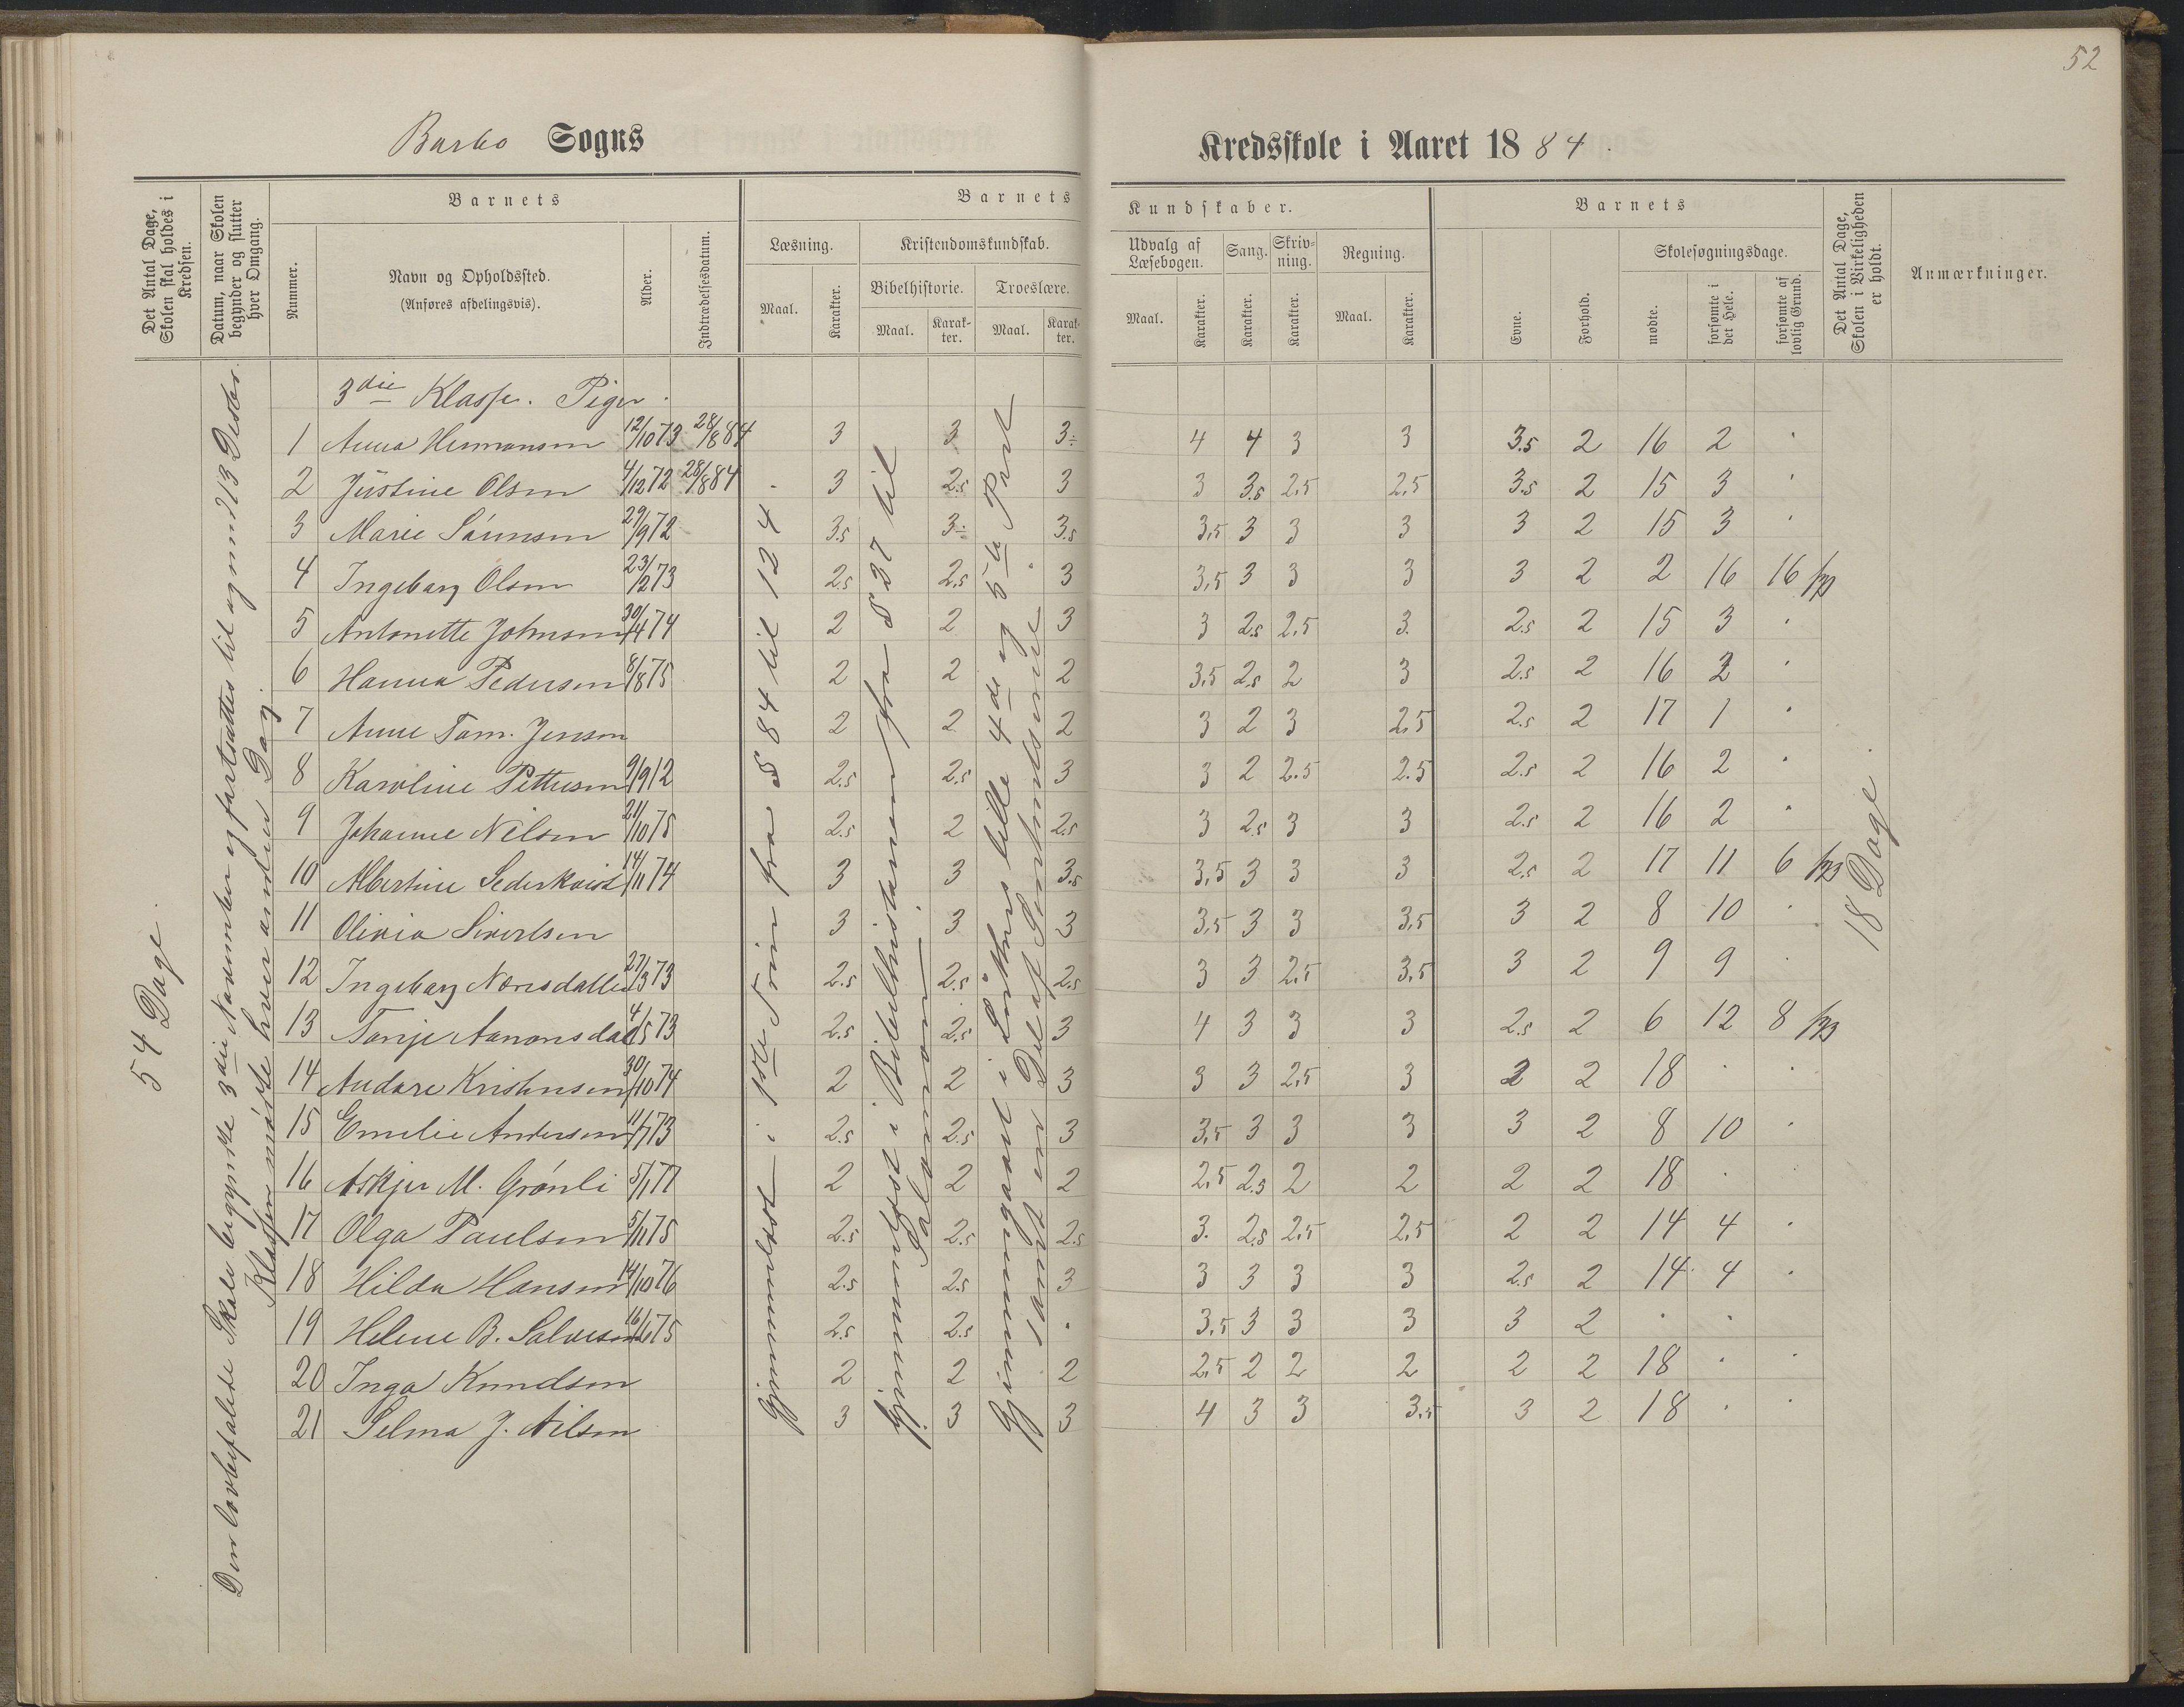 52
Barbo Sogns
Kredsskole i Aaret 1884.
Det Antal Dage, Skolen skal holdes i Kredsen.
Datum, naar Skolen begynder og slutter hver Omgang.
Nummer.
Barnets
Navn og Opholdssted.
(Anføres afdelingsvis).
Alder.
Indtrædelsesdatum.
Barnets
Læsning.
Maal.
Karakter.
Kristendomskundskab.
Bibelhistorie.
Maal.
Karakter.
Troeslære.
Maal.
Karakter.
Kundskaber.
Udvalg af Læsebogen.
Maal.
Karakter.
Sang.
Karakter.
Skrivning.
Karakter.
Regning.
Maal.
Karakter.
Barnets
Evne.
Forhold.
Skolesøgningsdage.
mødte.
forsømte i det Hele.
forsømte af lovlig Grund.
Det Antal Dage, Skolen i Virkeligheden er holdt.
Anmærkninger.
54 Dage.
Den lovbefalede Skole begyndte 3die November og fortsattes til og med 13 Desbr.
Klassen mødte hver anden Dag.
Gjennemlæst i 1ste Trin fra S 84 til 124
Gjennemlæst i Bibelhistorien fra S 37 til
Salomon.
Gjennemgaaet i Luthers lille 4de og 5te Part
samt en Del af
18 Dage.
3die Klasse. Piger.
1 Anna Hermansen 12/10 73 28/8 84 3 3 3÷ 4 4 3 3 3.5 2 16 2 .
2 Justine Olsen 4/12 72 28/8 84 3 2.5 3 3 3.5 2,5 2,5 3.5 2 15 3 .
3 Marie Sørensen 29/9 72 3.5 3÷ 3.5 3,5 3 3 3 3 2 15 3 .
4 Ingeborg Olsen 23/12 73 2.5 2.5 3 3,5 3 3 3 3 2 2 16 16
5 Antonette Johnsen 30/4 74 2 2 3 3 2.5 2,5 3. 2.5 2 15 3 .
6 Hanna Pedersen 8/8 75 2 2 2 3,5 2.5 2 3 2.5 2 16 2 .
7 Anne Tom. Jenson 2 2 2 3 2 3 2,5 2.5 2 17 1 .
8 Karoline Pettersen 9/9 12 2.5 2.5 3 3 2 2.5 2.5 2.5 2 16 2 .
9 Johanne Nilsen 21/10 75 2.5 2 2.5 3 2.5 3 3 2.5 2 16 2 .
10 Albertine Sederkvist 14/11 74 3 3 3.5 3,5 3 3 3 2.5 2 17 11 6
11 Olivia Sivertsen 3 3 3 3,5 3 3 3,5 3 2 8 10 .
12 Ingeborg 27/3 73 2.5 2.5 2.5 3 3 2,5 3,5 3 2 9 9 .
13 Tonje Aanonsdal 4/5 73 2.5 2.5 3 4 3 3 3 2.5 2 6 12 8
14 Andora Kristensen 30/10 74 2 2 3 3 3 2,5 3 2 2 18 . .
15 Emelie Andersen 11/7 73 2.5 2.5 3 3,5 3 3 3 3 2 8 10 .
16 Askjer M. Grønli 5/1 77 2 2 2 2,5 2.5 2 2 2 2 18 .
17 Olga Paulsen 5/11 75 2.5 2.5 2.5 3. 2.5 2,5 2,5 2 2 14 4 .
18 Hilda Hansen 14/10 76 2.5 2.5 3 3 3 3 3 2.5 2 14 4 .
19 Helene B. Salvesen 16/6 75 2.5 2.5 . 3,5 3 3 3 3 2 . .
20 Inga Knudsen 2 2 2 2,5 2 2 2 2 2 18 . .
21 Selma J. Nilsen 3 3 3 4 3 3 3,5 3 2 18 . .